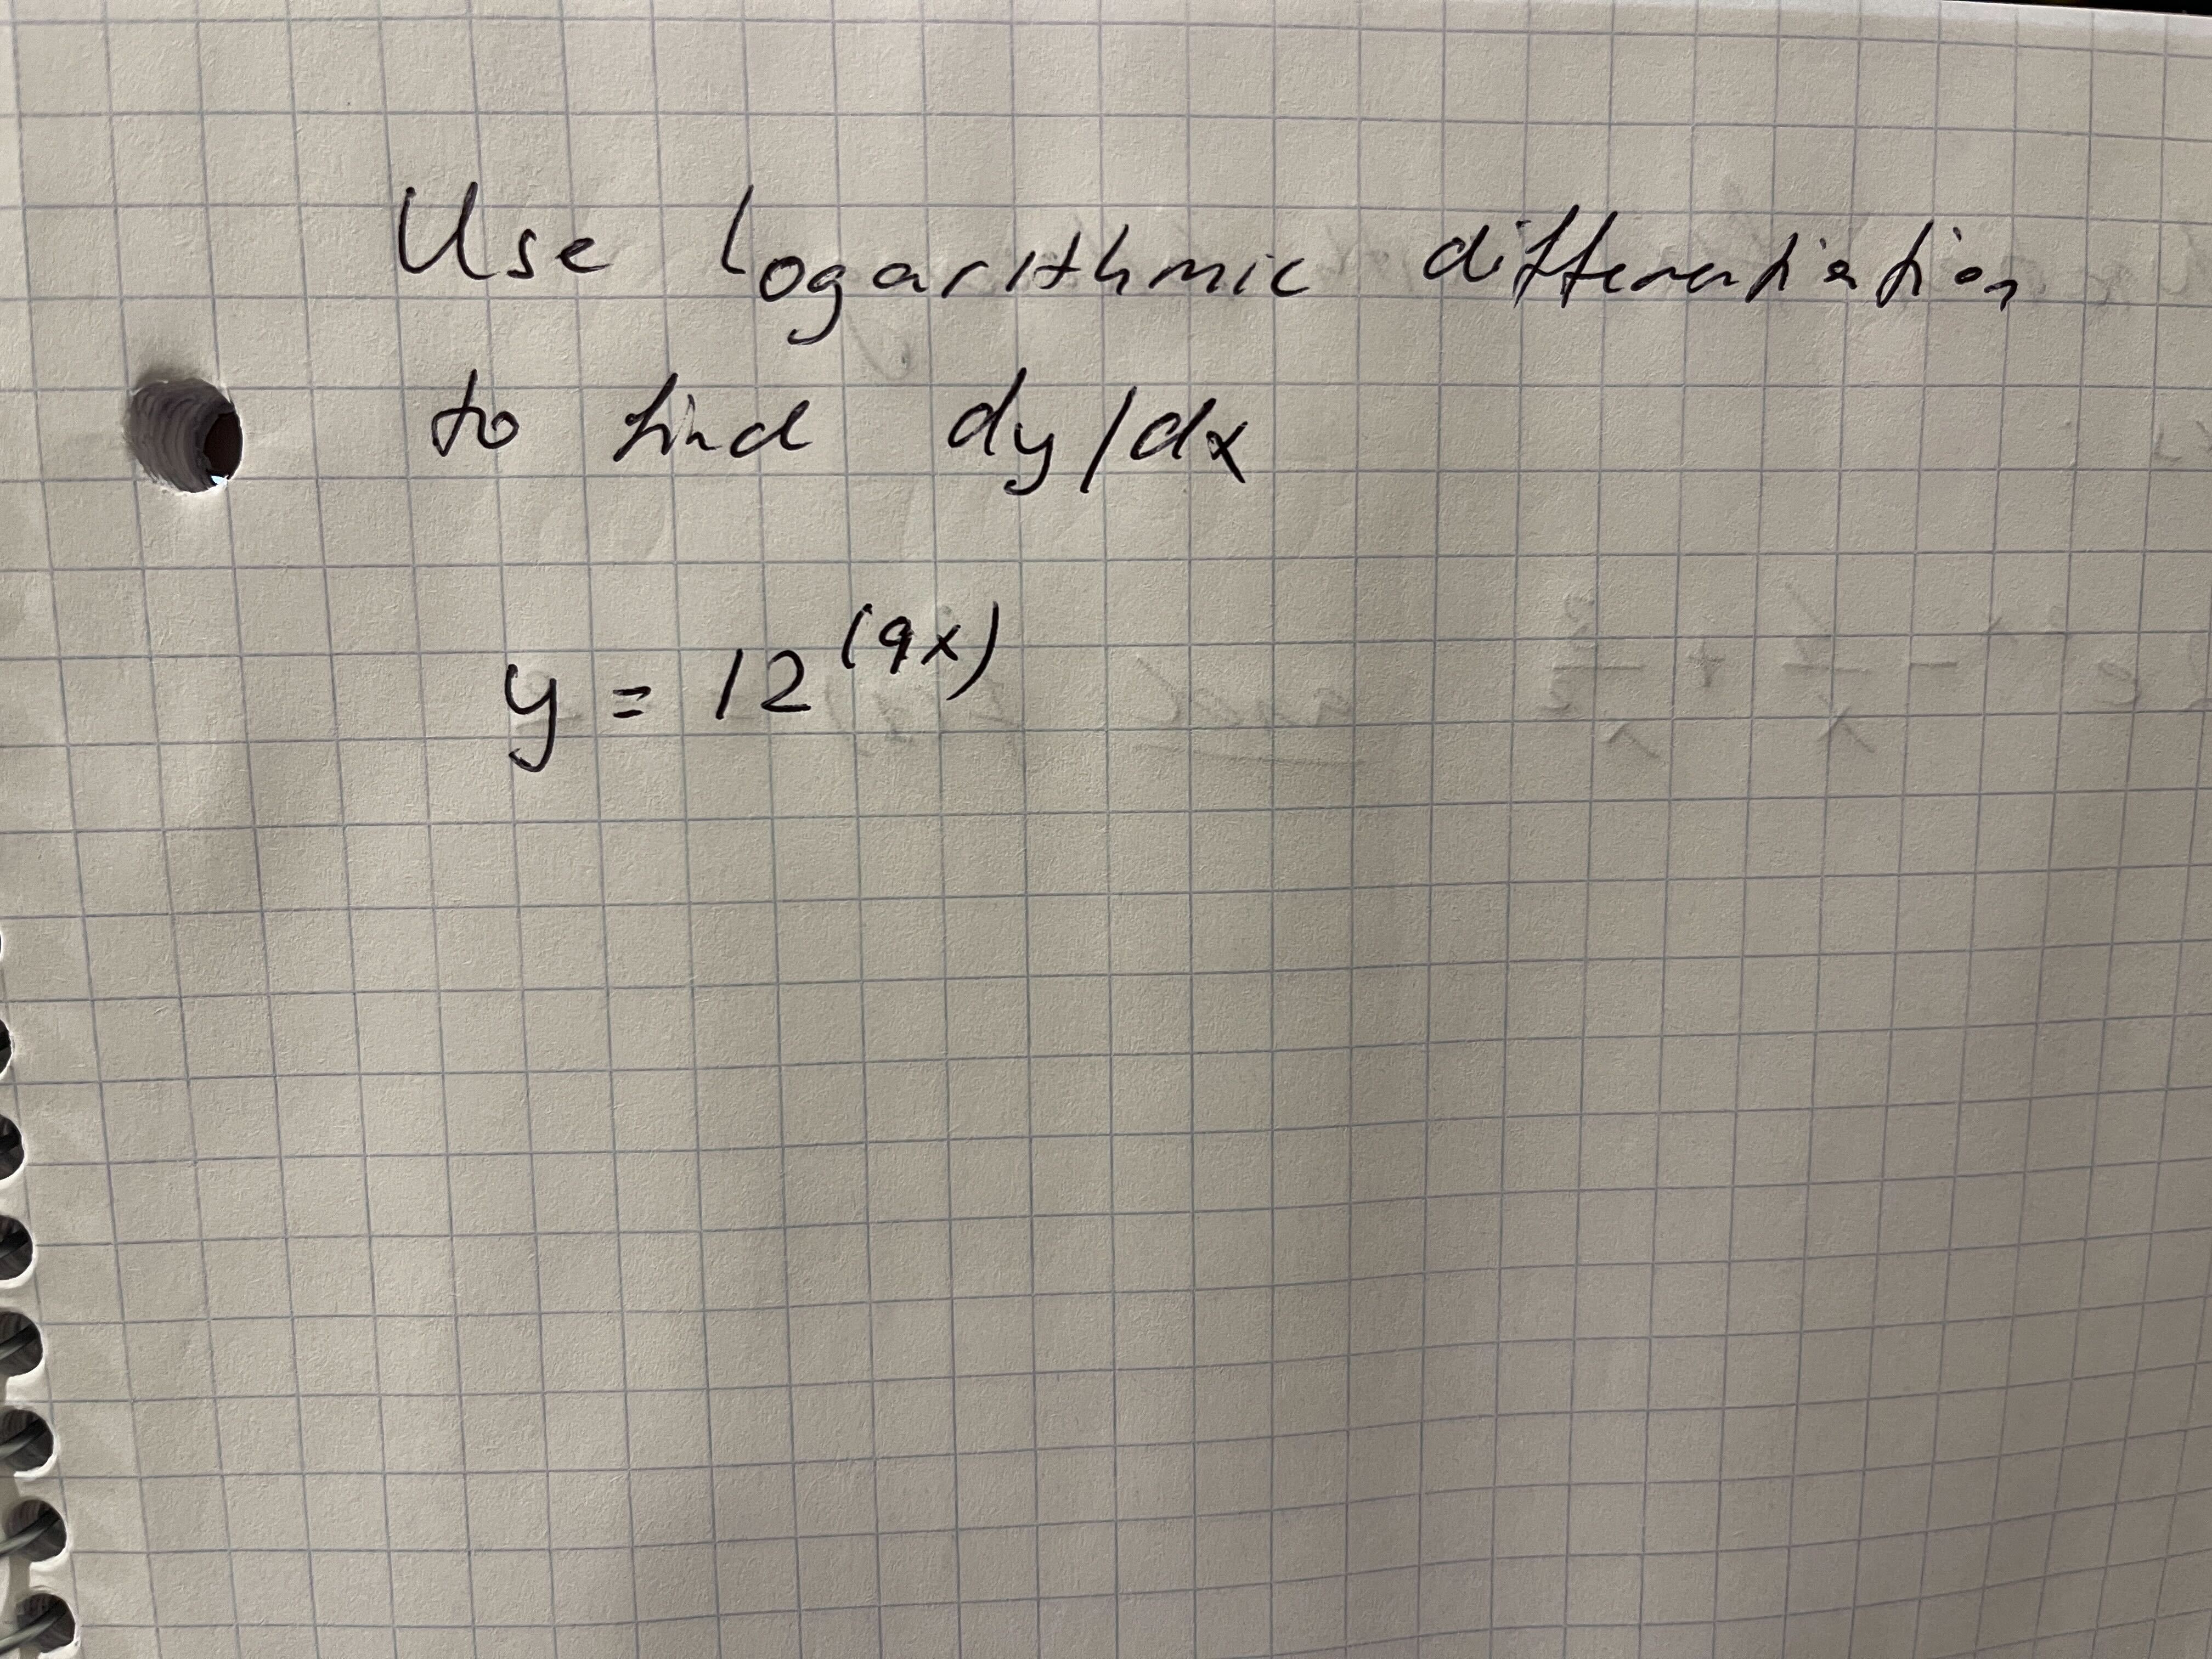 Use logarithmic differentiation
to find dy/dx
y = 12^(9x)